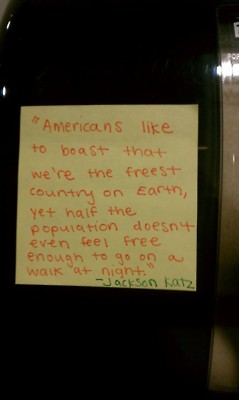 "Americans like
to boast that
we're the freest
country on Earth,
yet half the
population doesn't
even feel free
enough to go on a
walk at night."
-Jackson Katz